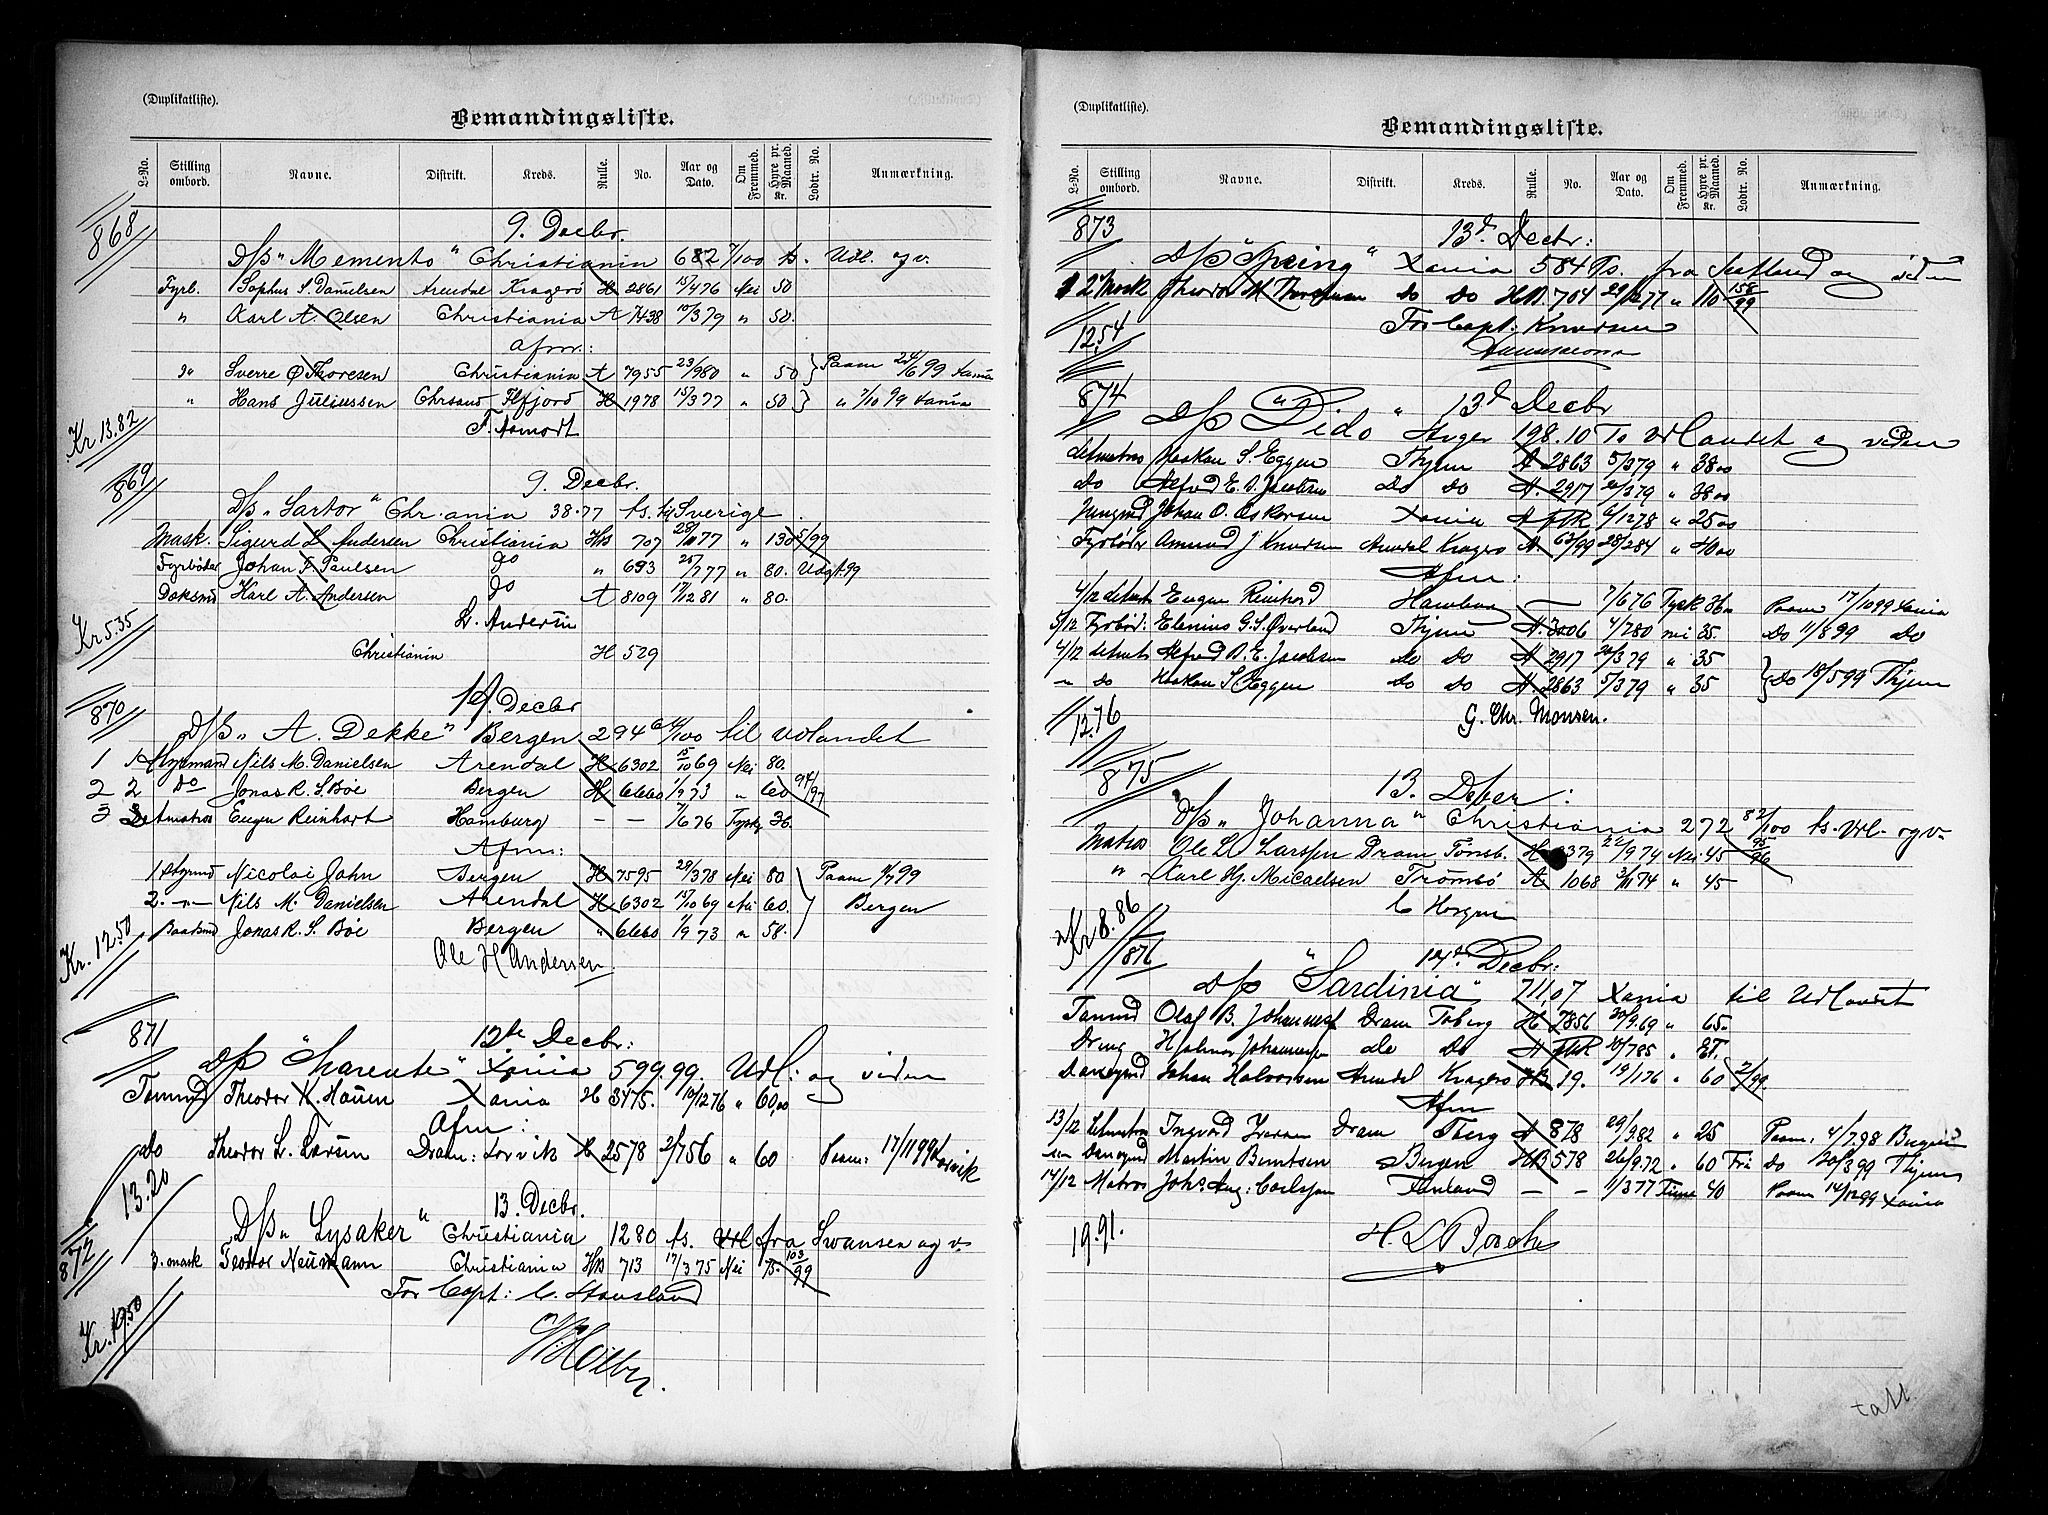 (Duplikatliste).
Bemandingsliste.
L-No. Stilling ombord. Navne. Distrikt. Kreds. Rulle. No. Aar og Dato. Om Fremmed. Hyre pr. Maaned. Kr. Lodtr. No. Anmærkning.
868 9. Decbr.
D/S „Memento" Christiania 682 7/100 t. Udl. og v.
Fyrb. Sophus S. Danielsen Arendal Kragerø H 2861 15/4 76 Nei 50
„ Karl A. Olsen Christiania A 7438 10/3 79 „ 50.
Afm.:
„ Sverre Ø. Thoresen Christiania A 7955 23/9 80 „ 50 Paam 24/6 99
„ Hans Juliussen Chrsand H 1978 15/3 77 „ 50 „ 7/10 99 Xania
Kr 13.82 F. Aamodt
869 9. Decbr.
D/S „Sartor" Chr.ania 38.77 ts. til Sverige.
Mask. Sigurd L. Andersen Christiania HB 707 „ 130 5/99
Fyrbøter Johan F. Paulsen Do „ 693 25/7 77 „ 80. Udgt. 99
Dæksmd Karl A. Andersen Do A 8109 17/12 81 „ 80.
Kr 5.35 L. Andersen
Christiania H 529
870 Decbr
D/S „A. Dekke" Bergen 294 64/100 til Udlandet
1 1 Styrmand Nils M. Danielsen Arendal H 6302 15/10 69 Nei 80.
2 2 Do Jonas R. S. Bøe Bergen H 6660 1/9 73 „ 60 94/97
3 Letmatros Eugen Reinhart Hamburg — — 7/6 76 Tysk 36.
Afm:
1 Styrmd Nicolai John Bergen H 7595 28/3 78 Nei 80 Paam 99
2. „ Nils M. Danielsen Arendal H 6302 15/10 69 Nei 60. Bergen
Baadsmd Jonas R. S. Bøe Bergen „ 6660 1/9 73 „ 58.
Kr. 12.50 Ole H Andersen
871 12te Decbr:
D/S "Charente" Xania 599,99. Udl: og viden
Tømmd Theodor H. Hansen Xania H 3475. 10/12 76 „ 60,00
Afm:
do Theodor L. Larsen Dram: Larvik H 2578 2/7 56 „ 60 Paam: 17/11 99 Larvik
13.20
872 13 Decbr.
D/S „Lysaker" Christiania 1280 ts. Udl fra Swansea og v.
3. mask Teodor Neumann Christiania HB 713 17/3 75 Nei 75. 103/99
For Capt: C. Stousland
Kr. 19.50
(Duplikatliste).
Bemandingsliste.
L-No. Stilling ombord. Navne. Distrikt. Kreds. Rulle. No. Aar og Dato. Om Fremmed. Hyre pr. Maaned. Kr. Lodtr. No. Anmærkning.
873 13d Decbr:
D/S "Spring" Xania 584 Ts. fra og viden
2d Mask Theodor M. Do Do HB. 704 29/12 77 „ 110 158/99
12.54 For Capt. Knudsen
874 13d Decbr
D/S "Dido" 198.10 Ts Udlandet og viden
Letmatros Haakon S. Eggen Thjem A 2863 5/3 79 „ 38 00
Do Alfred E. B. Jacobsen Do Do A. 2917 20/3 79 „ 38 00
Jungmd Johan O. Oskarsen Xania A 6/12 78 „ 25 00
Fyrbøder Amund J Knudsen Arendal Kragerø A. 63/99 28/2 84 „ 40 00
Afm:
4/12 Letmts Eugen Reinhard Hamburg — 7/6 76 Tysk 36 Paam 17/10 99 Xania
5/12 Fyrbød: Elenius G. S. Øverland Thjem A. 3006 4/7 80 nei 35. Do 11/8 99 Do
4/12 Letmts Alfred B. E. Jacobsen Do Do A 2917 20/3 79 „ 35
„ Do Haakon S Eggen Do Do A. 2863 5/3 79 „ 35 Do 18/5 99 Thjem
12.76 G. Chr. Monsen.
875 13. Decber:
D/S „Johanna" Christiania 272 82/100 ts. Udl. og v.
Matros Ole L. Larssen Dram Tønsb. H 379 22/9 74 Nei 45 95/96
„ Karl Hj. Micaelsen Tromsø A 1068 3/11 74 „ 45
Kr 8.86
876 14d Decbr:
D/S "Sardinia" 711,07 Xania til Udlandet
Tømmd Olaf B. Johannes Dram Tøberg H 7856 20/9.69 „ 65.
Dreng Hjalmar Johannesen do Do A 10/7 85 „ ET.
Donkymd Johan Halvorsen Arendal Kragerø HB 19. 19/1 76 „ 60 2/99
Afm
13/12 Letmatros Ingvard Iversen Dram Tberg A 878 29/9.82 „ 25 Paam. 4/7.98 Bergen
„ Donkymd Martin Berntsen Bergen HB 578 26/9.72 „ 60 Fri do 20/3 99 Thjem
14/12 Matros Johs Aug: Carlsson Finland — — 1/3 77 Finne 40 Paam 14/12 99 Xania
19.91.
talt